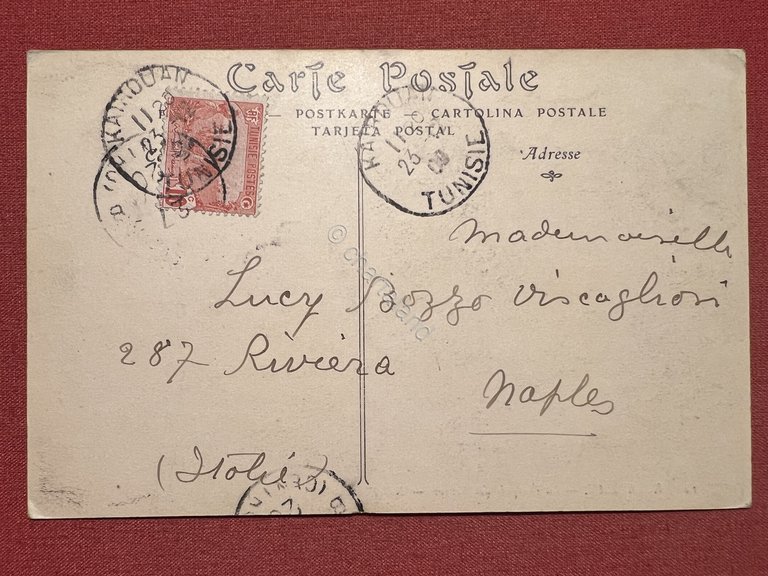 Carte Postale
POSTKARTE — CARTOLINA POSTALE
TARJETA POSTAL
Adresse
KAIROUAN
23
TUNISIE
KAIROUAN
23
TUNISIE
TUNISIE POSTES
10
Mademoiselle
Lucy Bozzo Viscogliosi
287 Riviera
Naples
(Italie)